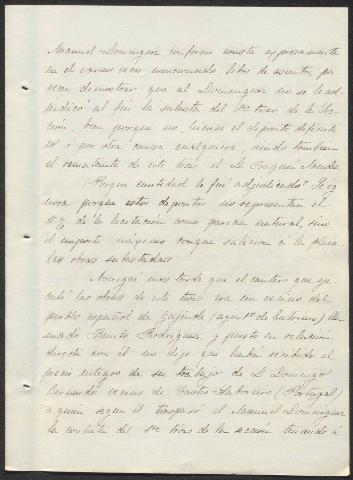 Manuel Dominguez conforme consta expresamente
en el varias veces mencionado libro de asientos, pa-
recen demostrar que al Dominguez no se le ad-
judicó al fin la subasta del 1er trozo de la Sec-
ción, bien porque no hiciese el deposito definiti-
vó ó por otra causa cualquiera, siendo tambien
el rematante de este trozo el D. Joaquin Mendez.
¿Porque cantidad le fué adjudicado? Se ig-
nora porque estos depositos no representan el
5 % de la licitación como parecia natural, sino
el importe integro conque salieron á la plaza
las obras subastadas.
Averigué mas tarde que el cantero que eje-
cutó las obras de este trozo era un vecino del
pueblo español de (agente de
mado Benito Rodriguez y puesto en relación
directa con él me dijo que habia recibido el
precio integro de su trabajo de D. Domingo
Bernardo vecino de Castro Laboreiro (Portugal)
a quien segun él traspasó el Manuel Dominguez
la contrata del 1er trozo de la sección